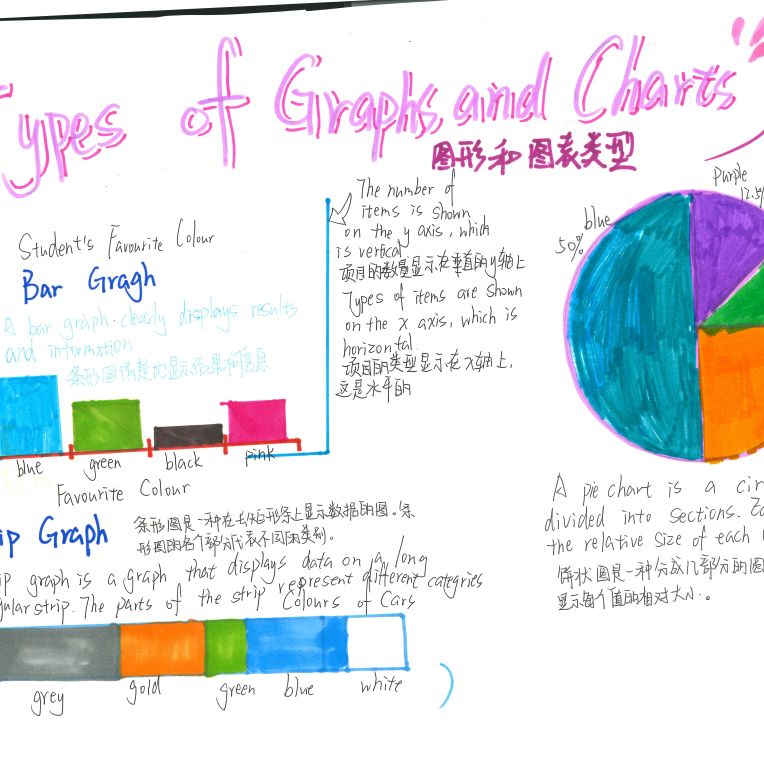 Types of Graphs and Charts
图形和图表类型
Student's Favourite Colour
Bar Gragh
A bar graph clearly displays results
and information
条形图清楚地显示结果和信息
blue
green
black
pink
Favourite Colour
The number of
items is shown
on the y axis, which
is vertical
项目的数量显示在垂直的y轴上
Types of items are shown
on the x axis, which is
horizontal.
项目的类型显示在x轴上,
这是水平的
ip Graph
条形图是一种在长矩形条上显示数据的图。条
形图的各个部分代表不同的类别。
ip graph is a graph that displays data on a long
gular strip. The parts of the strip represent different categries
Colours of Cars
grey
gold
green
blue
white
blue
50%
Purple
12.5%
A pie chart is a cir
divided into sections. Ea
the relative size of each
饼状图是一种分成几部分的圆
显示每个值的相对大小。